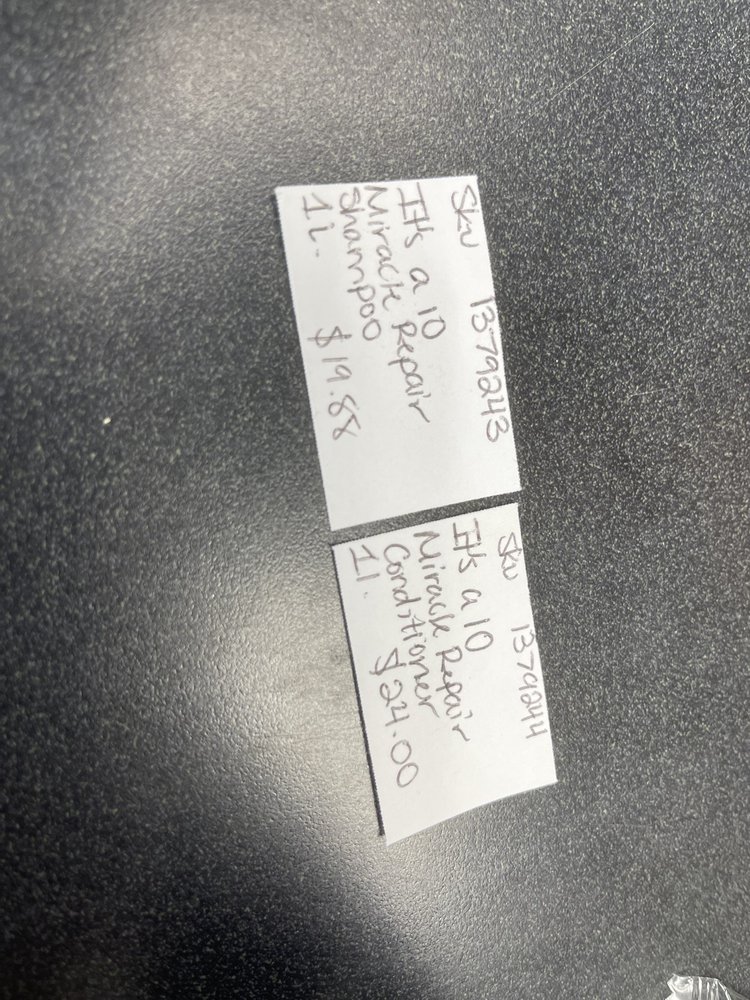 Sku 1379243
It's a 10
Miracle Repair
Shampoo
1l. $19.88
Sku 1379244
It's a 10
Miracle Repair
Conditioner
1l. $24.00